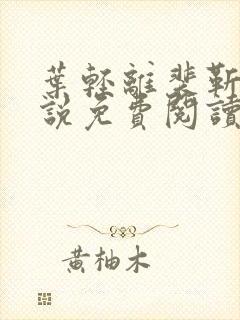 葉輕離裴靳
說免費閱讀
黃柚木